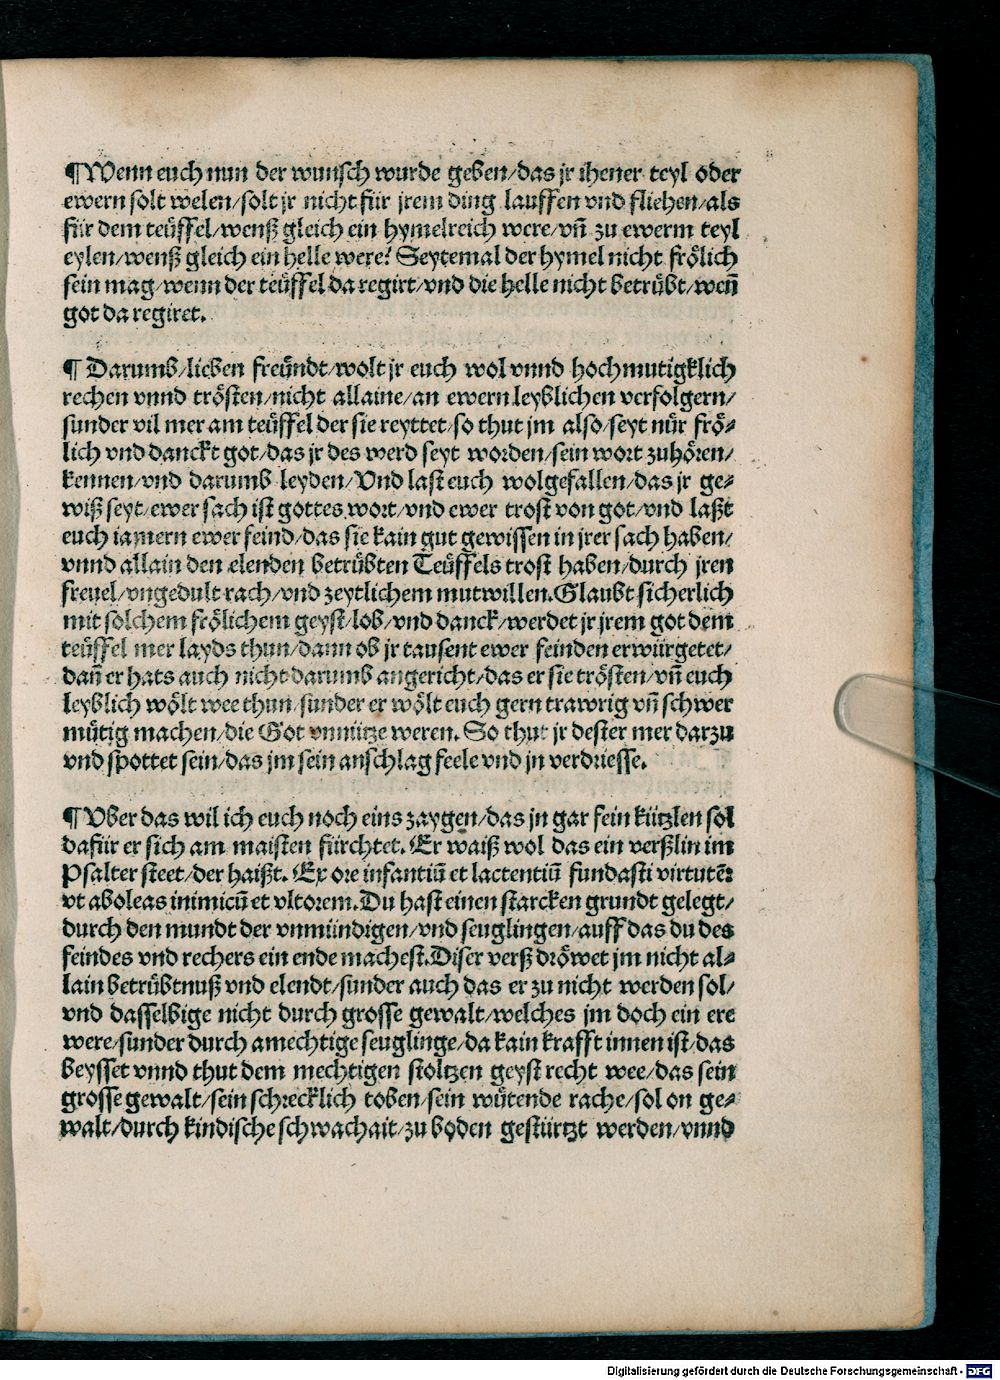 ¶ Wenn euch nun der wunsch wurde geben/das jr jhener teyl oder
ewern solt welen/solt jr nicht für jrem ding lauffen vnd fliehen/als
für dem teüffel/wenß gleich ein hymelreich were/vñ zu ewerm teyl
eylen/wenß gleich ein helle were? Seytemal der hymel nicht frölich
sein mag/wenn der teüffel da regirt/vnd die helle nicht betrübt/weñ
got da regiret.
¶ Darumb/lieben freündt/wolt jr euch wol vnnd hochmutigklich
rechen vnnd trösten/nicht allaine/an ewern leyblichen verfolgern/
sunder vil mer am teüffel der sie reyttet/so thut jm also/seyt nür frö⸗
lich vnd danckt got/das jr des werd seyt worden/sein wort zuhören/
kennen/vnd darumb leyden/Vnd last euch wolgefallen/das jr ge⸗
wiß seyt/ewer sach ist gottes wort/vnd ewer trost von got/vnd laßt
euch iamern ewer feind/das sie kain gut gewissen in jrer sach haben/
vnnd allain den elenden betrübten Teüffels trost haben/durch jren
freuel/vngedult rach/vnd zeytlichem mutwillen. Glaubt sicherlich
mit solchem frölichem geyst/lob/vnd danck/werdet jr jrem got dem
teüffel mer layds thun/dann ob jr tausent ewer feinden erwürgetet/
dañ er hats auch nicht darumb angericht/das er sie trösten/vñ euch
leyblich wölt wee thun/sunder er wölt euch gern trawrig vñ schwer
mütig machen/die Got vnnütze weren. So thut jr dester mer darzu
vnd spottet sein/das jm sein anschlag feele vnd jn verdriesse.
¶ Vber das wil ich euch noch eins zaygen/das jn gar fein kützlen sol
dafür er sich am maisten fürchtet. Er waiß wol das ein verßlin im
Psalter steet/der haißt. Ex ore infantiū et lactentiū fundasti virtutē:
vt aboleas inimicū et vltorem. Du hast einen starcken grundt gelegt/
durch den mundt der vnmündigen/vnd seuglingen/auff das du des
feindes vnd rechers ein ende machest. Diser verß dröwet jm nicht al⸗
lain betrübtnuß vnd elendt/sunder auch das er zu nicht werden sol/
vnd dasselbige nicht durch grosse gewalt/welches jm doch ein ere
were/sunder durch amechtige seuglinge/da kain krafft innen ist/das
beysset vnnd thut dem mechtigen stoltzen geyst recht wee/das sein
grosse gewalt/sein schrecklich toben/sein wütende rache/sol on ge⸗
walt/durch kindische schwachait/zu boden gestürtzt werden/vnnd
Digitalisierung gefördert durch die Deutsche Forschungsgemeinschaft - DFG